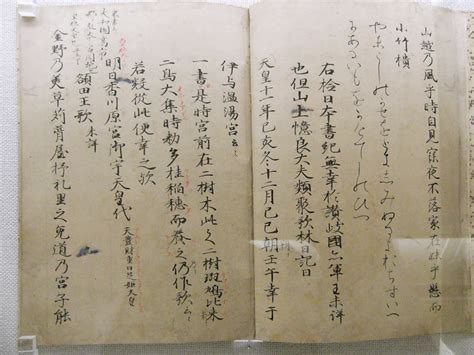 山越乃風乎時自見寐夜不落家在妹乎懸而
小竹樻
やまこしのかせをときしみぬるよおちすいへ
にあるいもをかけてしのひつ
右検日本書紀無幸於讃岐國亦軍王未詳
也但山上憶良大夫類聚歌林曰記曰
天皇十一年己亥冬十二月己巳朔壬午幸于
伊与温湯宮云々
一書是時宮前在二樹木此之二樹斑鳩比米
二鳥大集時勅多挂稲穂而養之仍作歌云々
若疑従此便幸之歟
明日香川原宮御宇天皇代 天豊財重日足姫天皇
額田王歌 未詳
金野乃美草苅葺屋杼礼里之兎道乃宮子能